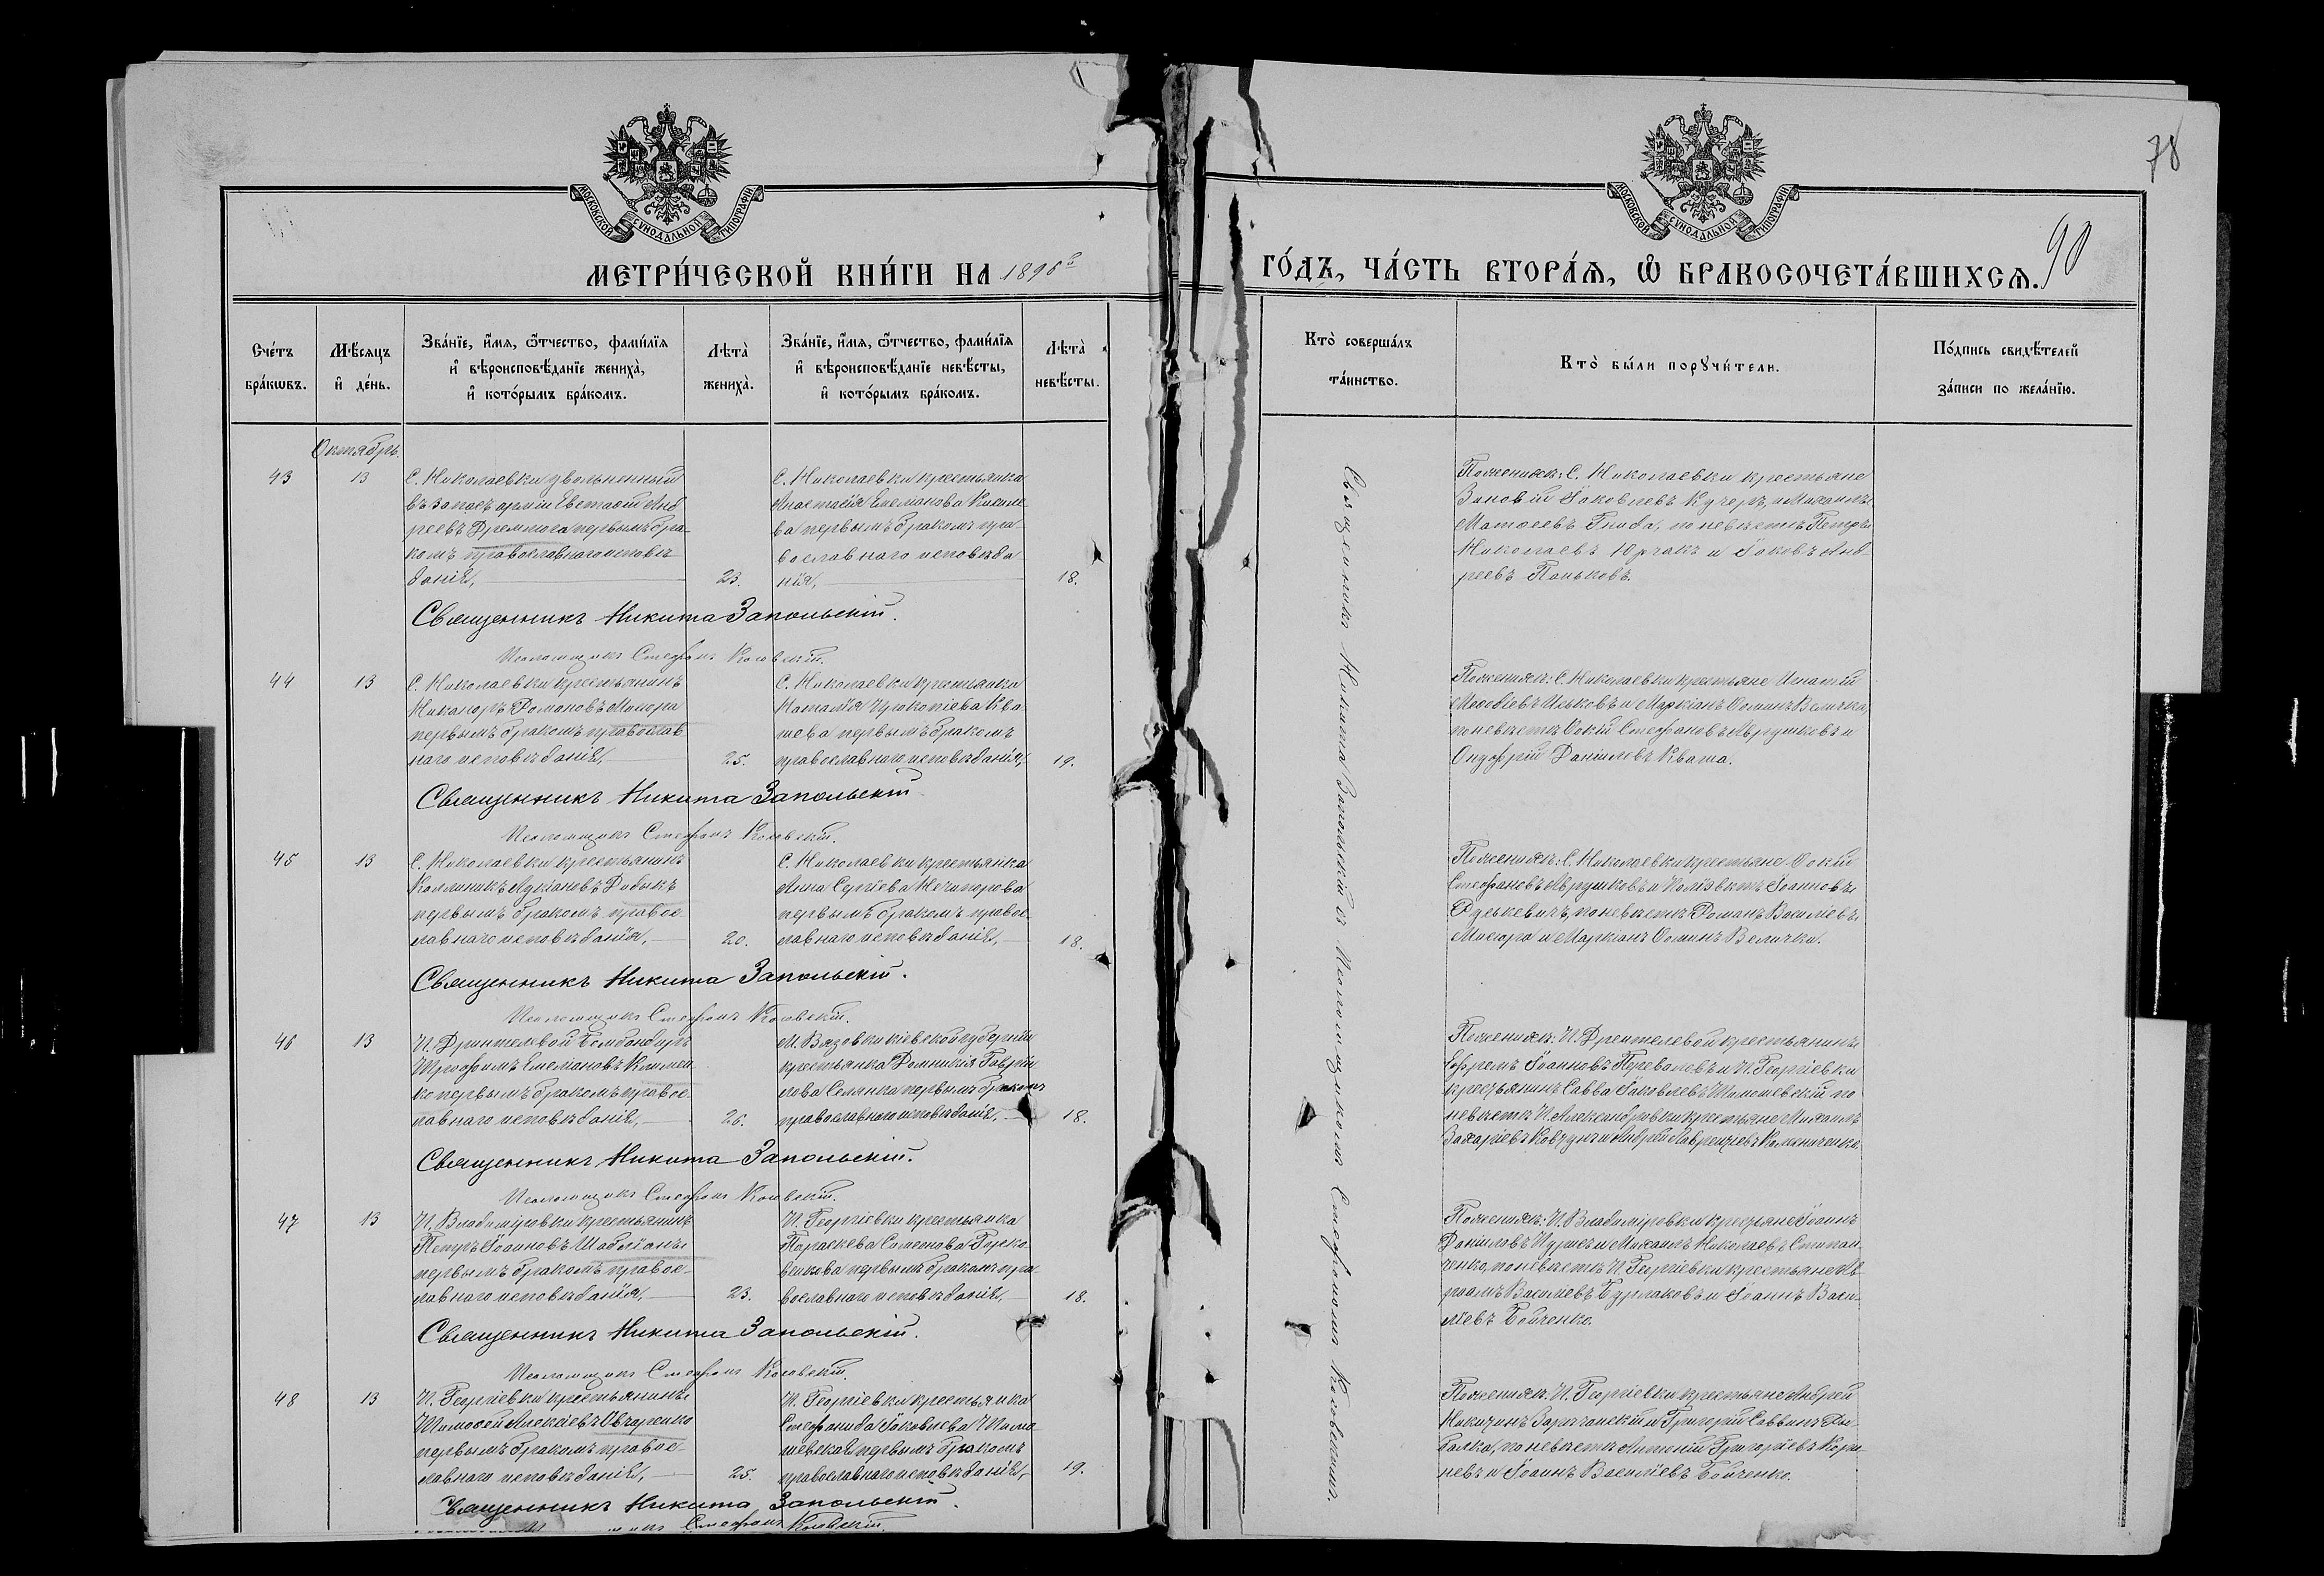 78
90
МОСКОВСКОЙ СѴНОДАЛЬНОЙ ТИПОГРАФІИ
МОСКОВСКОЙ СѴНОДАЛЬНОЙ ТИПОГРАФІИ
МЕТРИ́ЧЕСКОЙ КНИ́ГИ НА 1898й
ГО́ДЪ, ЧА́СТЬ ВТОРА́Ѧ, Ѡ҆ БРАКОСОЧЕТА́ВШИХСѦ.
Сче́тъ бра́кѡвъ.
Мѣ́сѧцъ и҆ де́нь.
Зва́нїе, и҆́мѧ, ѻ҆́тчество, фами́лїѧ и҆ вѣроисповѣ́данїе жениха̀, и҆ кото́рымъ бра́комъ.
Лѣта̀ жениха̀.
Зва́нїе, и҆́мѧ, ѻ҆́тчество, фами́лїѧ и҆ вѣроисповѣ́данїе невѣ́сты, и҆ кото́рымъ бра́комъ.
Лѣта̀ невѣ́сты.
Кто̀ соверша́лъ та́инство.
Кто̀ бы́ли порꙋчи́тели.
По́дпись свидѣ́телей за́писи по жела́нїю.
Октябрь.
43
13
С. Николаевки уволенный
въ запасъ арміи Евстафій Анд
реевъ Дремлюга первымъ бра-
комъ православнаго исповѣ
данія,
23.
С. Николаевки крестьянка
Анастасія Емельянова
ва первымъ бракомъ пра-
вославнаго исповѣда
нія,
18.
По женихѣ: С. Николаевки крестьяне
Зиновій Іаковлевъ Кучеръ, и Михаилъ
Матѳеевъ Гнида, по невѣстѣ Петръ
Николаевъ Юрчакъ и Іаковъ Анд-
реевъ Паньковъ.
Священникъ Никита Запольскій.
Псаломщикъ Стефанъ Косовскій.
44
13
С. Николаевки крестьянинъ
Никаноръ Романовъ Мисюра
первымъ бракомъ православ
наго исповѣданія,
25.
С. Николаевки крестьянка
Наталія Прокопіева Ква
шева первымъ бракомъ
православнаго исповѣданія,
19.
По женихѣ: С. Николаевки крестьяне Игнатій
Ильковъ и Маркіанъ Ѳоминъ Величко,
по невѣстѣ Фокій Стефановъ Аврушковъ и
Онуфрій Даніиловъ Кваша.
Священникъ Никита Запольскій
Псаломщикъ Стефанъ Косовскій.
45
13
С. Николаевки крестьянинъ
Каллиникъ Лукіановъ Дибыкъ
первымъ бракомъ правос-
лавнаго исповѣданія,
20.
С. Николаевки крестьянка
Анна Сергіева Нечипорова
первымъ бракомъ правос-
лавнаго исповѣданія,
18.
По женихѣ: С. Николаевки крестьяне Фокій
Стефановъ Аврушковъ и Іоанновъ
Рудькевичъ, по невѣстѣ Романъ Василіевъ
Мисюра и Маркіанъ Ѳоминъ Величко.
Священникъ Никита Запольскій.
Псаломщикъ Стефанъ Косовскій.
46
13
Трофимъ Емельяновъ Климен
ко первымъ бракомъ правос-
лавнаго исповѣданія,
26.
М. Вязовки кіевской губерніи
крестьянка Домникія Гаврі
лова первымъ бракомъ
православнаго исповѣданія,
18.
По женихѣ: П. Дрентелевой крестьянинъ
Ефремъ Іоанновъ Переваловъ и П. Георгіевки
крестьянинъ Савва Іаковлевъ Шимошевскій по
невѣстѣ П. Александровки крестьяне Михаилъ
Захаріевъ Ковтунъ и Андрей Лаврентіевъ
Священникъ Никита Запольскій.
Псаломщикъ Стефанъ Косовскій.
47
13
П. Владиміровки крестьянинъ
Петръ Іоанновъ
первымъ бракомъ правос-
лавнаго исповѣданія,
23.
П. Георгіевки крестьянка
Параскева Симеонова
первымъ бракомъ пра-
вославнаго исповѣданія,
18.
По женихѣ: П. Владиміровки крестьяне Іоаннъ
Даніиловъ и Михаилъ Николаевъ Степан-
ченко, по невѣстѣ П. Георгіевки крестьяне Ав
раамъ Василіевъ Бурлаковъ и Іоаннъ Васи-
ліевъ Бойченко.
Священникъ Никита Запольскій.
Псаломщикъ Стефанъ Косовскій.
48
13
П. Георгіевки крестьянинъ
Тимофей Алексіевъ Овчаренко
первымъ бракомъ правос-
лавнаго исповѣданія,
25.
П. Георгіевки крестьянка
Стефанида Іаковлева Шимо-
шевская первымъ бракомъ
православнаго исповѣданія,
19.
По женихѣ: П. Георгіевки крестьяне Андрей
Никитинъ и Григорій Саввинъ Ры-
балка, по невѣстѣ Антоній Григоріевъ Кор-
невъ и Іоаннъ Василіевъ Бойченко.
Священникъ Никита Запольскій.
Стефанъ Косовскій.
Священникъ Никита Запольскій съ Псаломщикомъ Стефаномъ Косовскимъ.